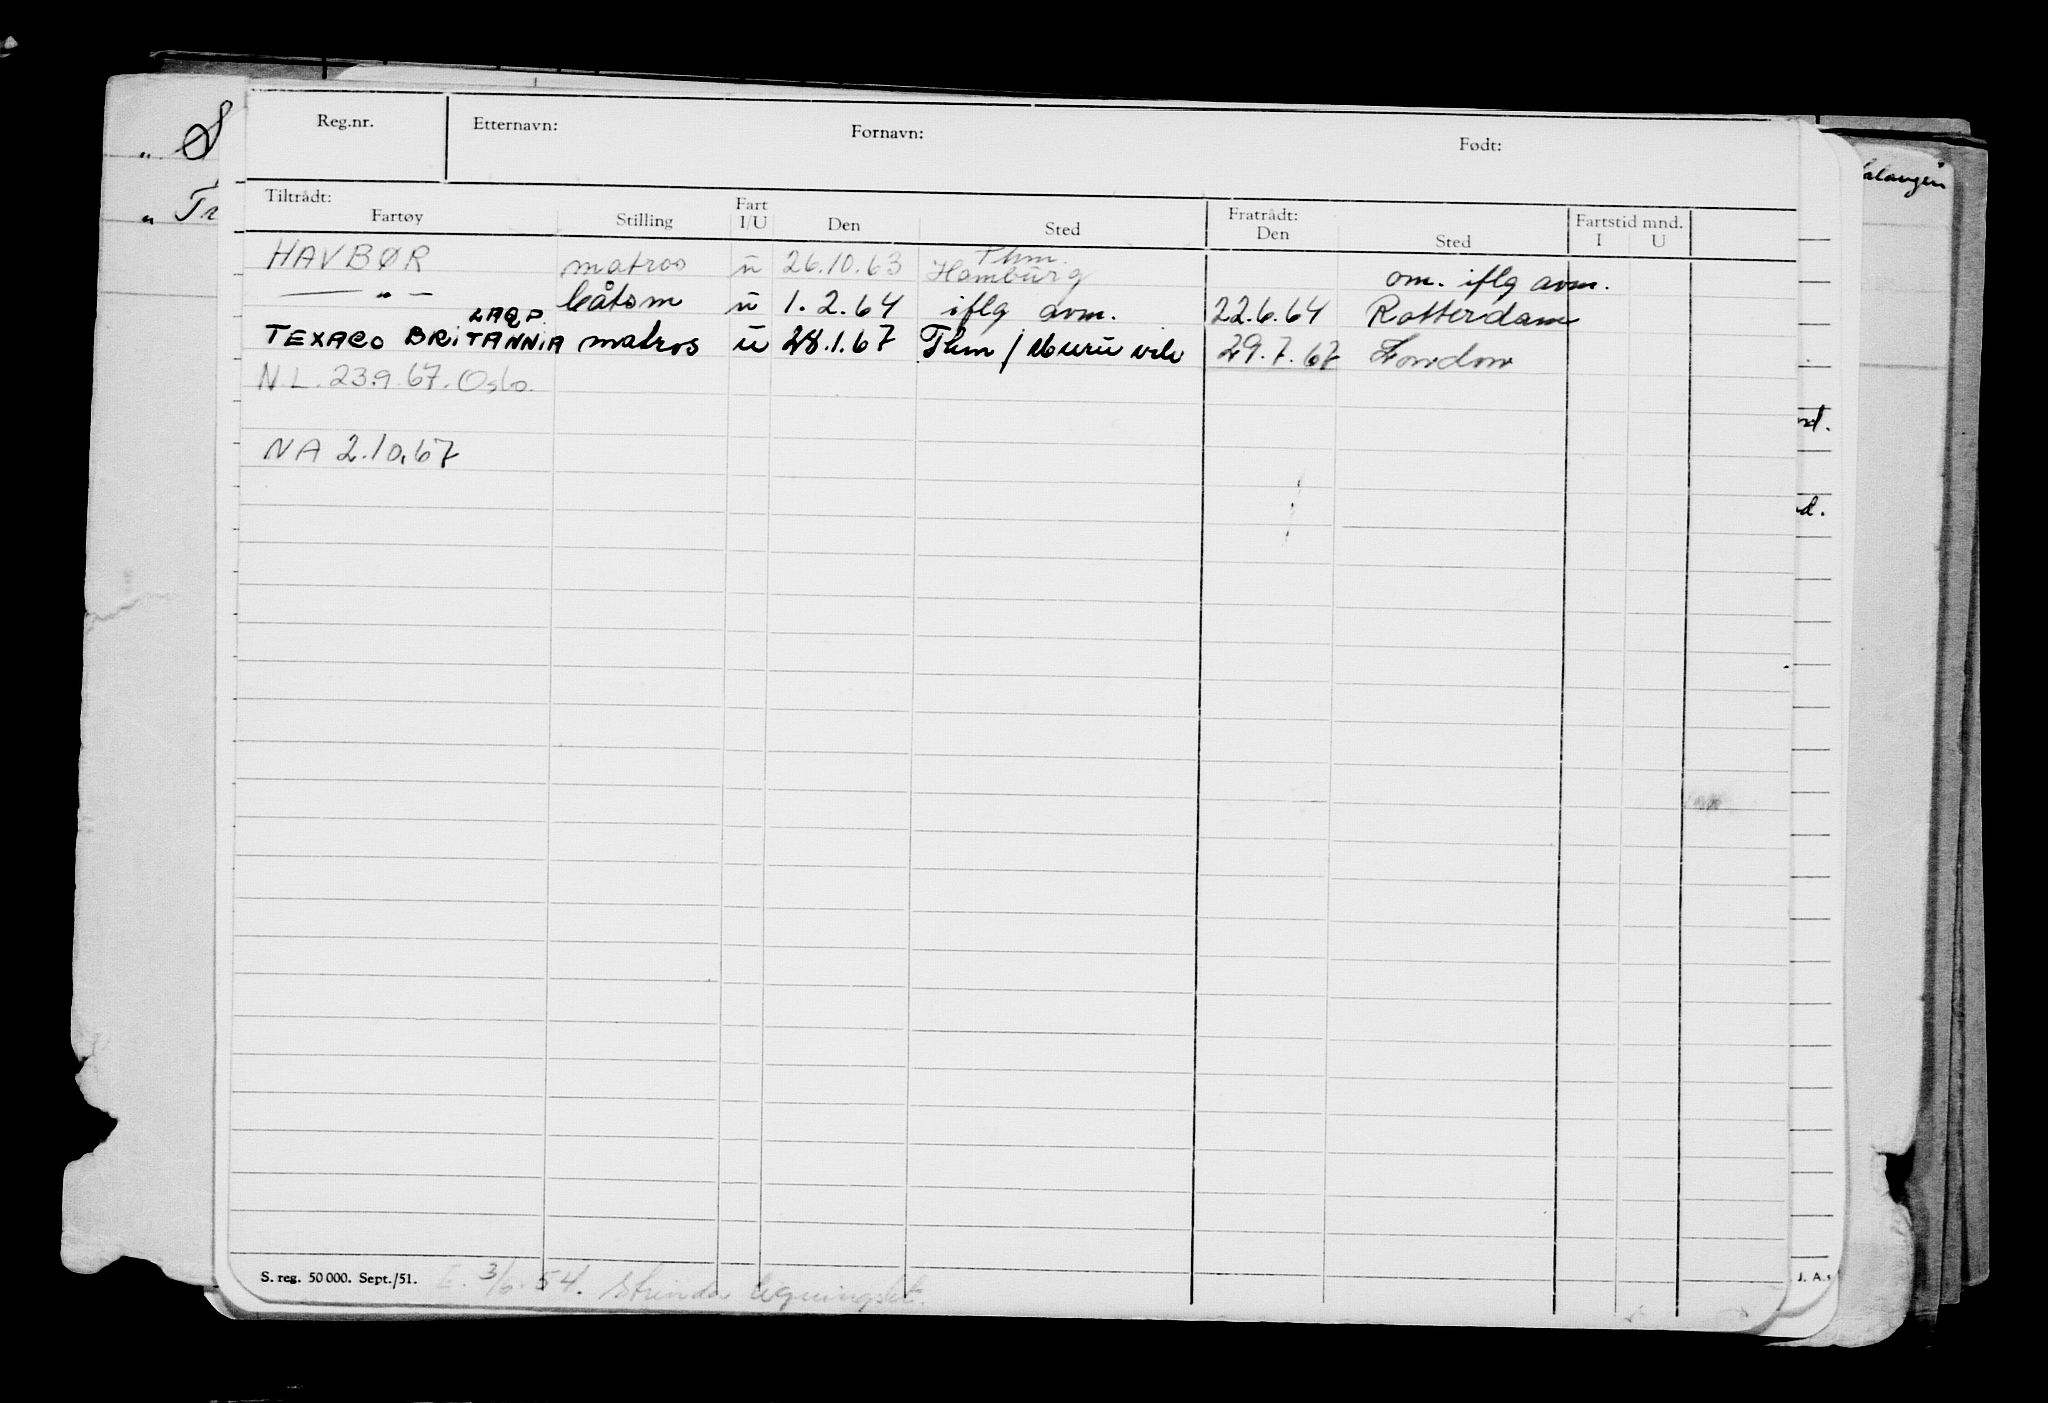 Reg.nr. Etternavn: Fornavn: Født:
Tiltrådt: Fartøy Stilling Fart I/U Den Sted Fratrådt: Den Sted Fartstid mnd. I U
HAVBØR matros u 26.10.63 Thm. Hamburg om. iflg avm.
— " — båtsm u 1.2.64 iflg avm. 22.6.64 Rotterdam
LAQP
TEXACO BRITANNIA matros u 28.1.67 Thm / 29.7.67 London
N.L. 23.9.67. Oslo.
NA 2.10.67
S. reg. 50 000. Sept./51. 3/6. 54. Strinda
" Tr
alangen
nd.
d.
J. A.